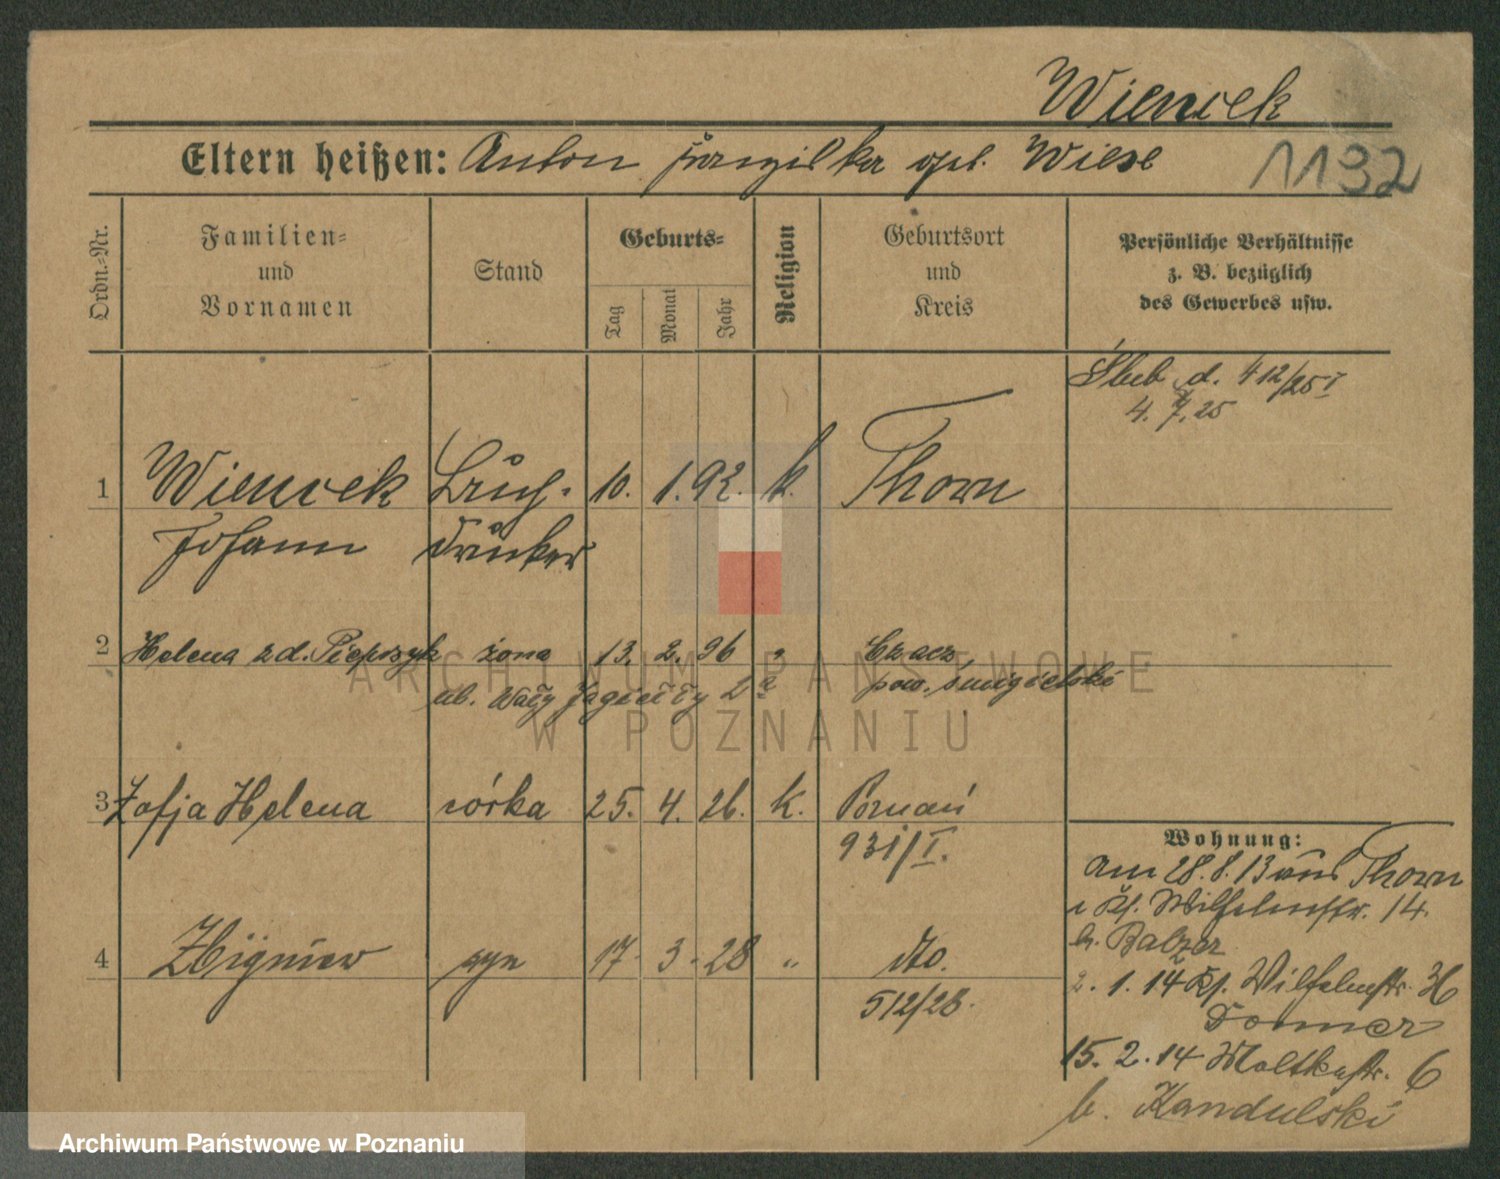 Wiencek
Eltern heißen: Anton Franziska geb. Wiese
1132
Ordn.-Nr.
Familien-
und
Vornamen
Stand
Geburts-
Tag
Monat
Jahr
Religion
Geburtsort
und
Kreis
Persönliche Verhältnisse
z. B. bezüglich
des Gewerbes usw.
Ślub d. 412/25 I
4. 7. 25
1 Wiencek Buch- 10. 1. 92. k. Thorn
Johann drucker
2 Helena z d. Pieprzyk żona 13. 2. 96 " Czacz
ul. Wały Jagiełły 2a pow. śmigielski
3 Zofja Helena córka 25. 4. 26. k. Poznań
931/I.
4 Zbigniew syn 17. 3. 28 " dto.
512/28.
Wohnung:
Am 28. 8. 13 aus Thorn
Wilhelmstr. 14
b. Balzer
2. 1. 14 Wilhelmstr.
15. 2. 14 Moltkestr. 6
b. Kandulski
ARCHIWUM PAŃSTWOWE
W POZNANIU
Archiwum Państwowe w Poznaniu